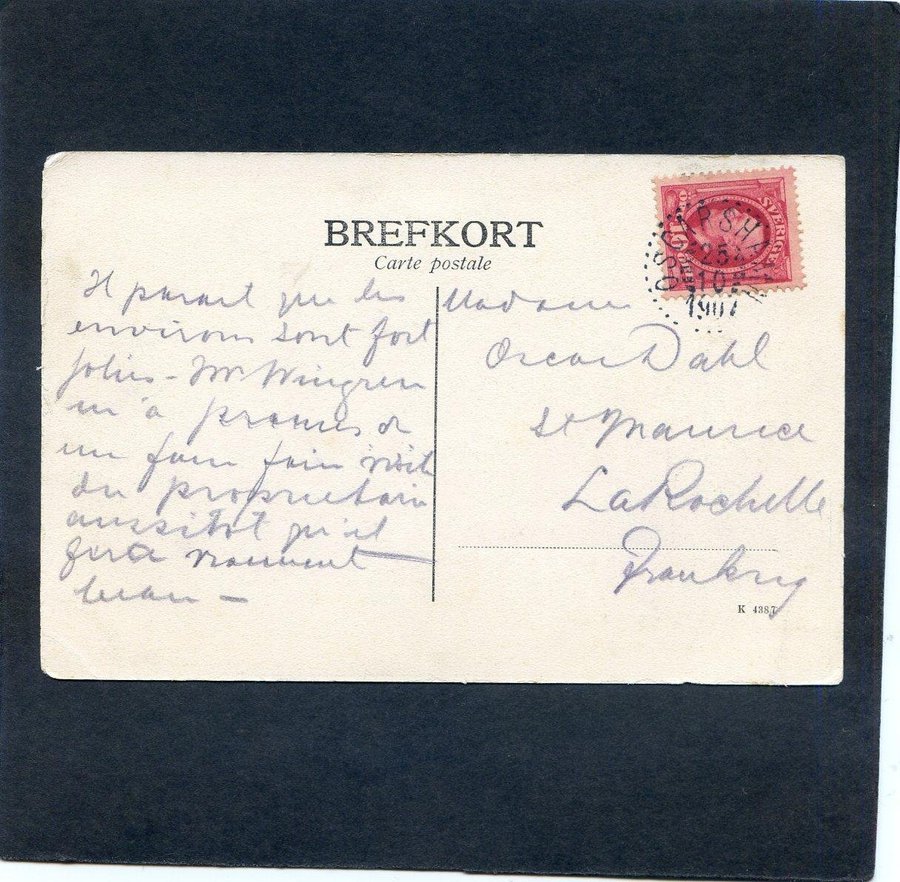 BREFKORT
Carte postale
SVERIGE
10 ÖRE
OSKARSHAMN
25 4
1907
Il parait que les
environs sont fort
jolies - Mr Wingren
m'a promis de
me faire faire visite
du propriétaire
aussitôt qu'il
fera vraiment
beau -
Madame
Oscar Dahl
St Maurice
La Rochelle
Frankrig
K 4387